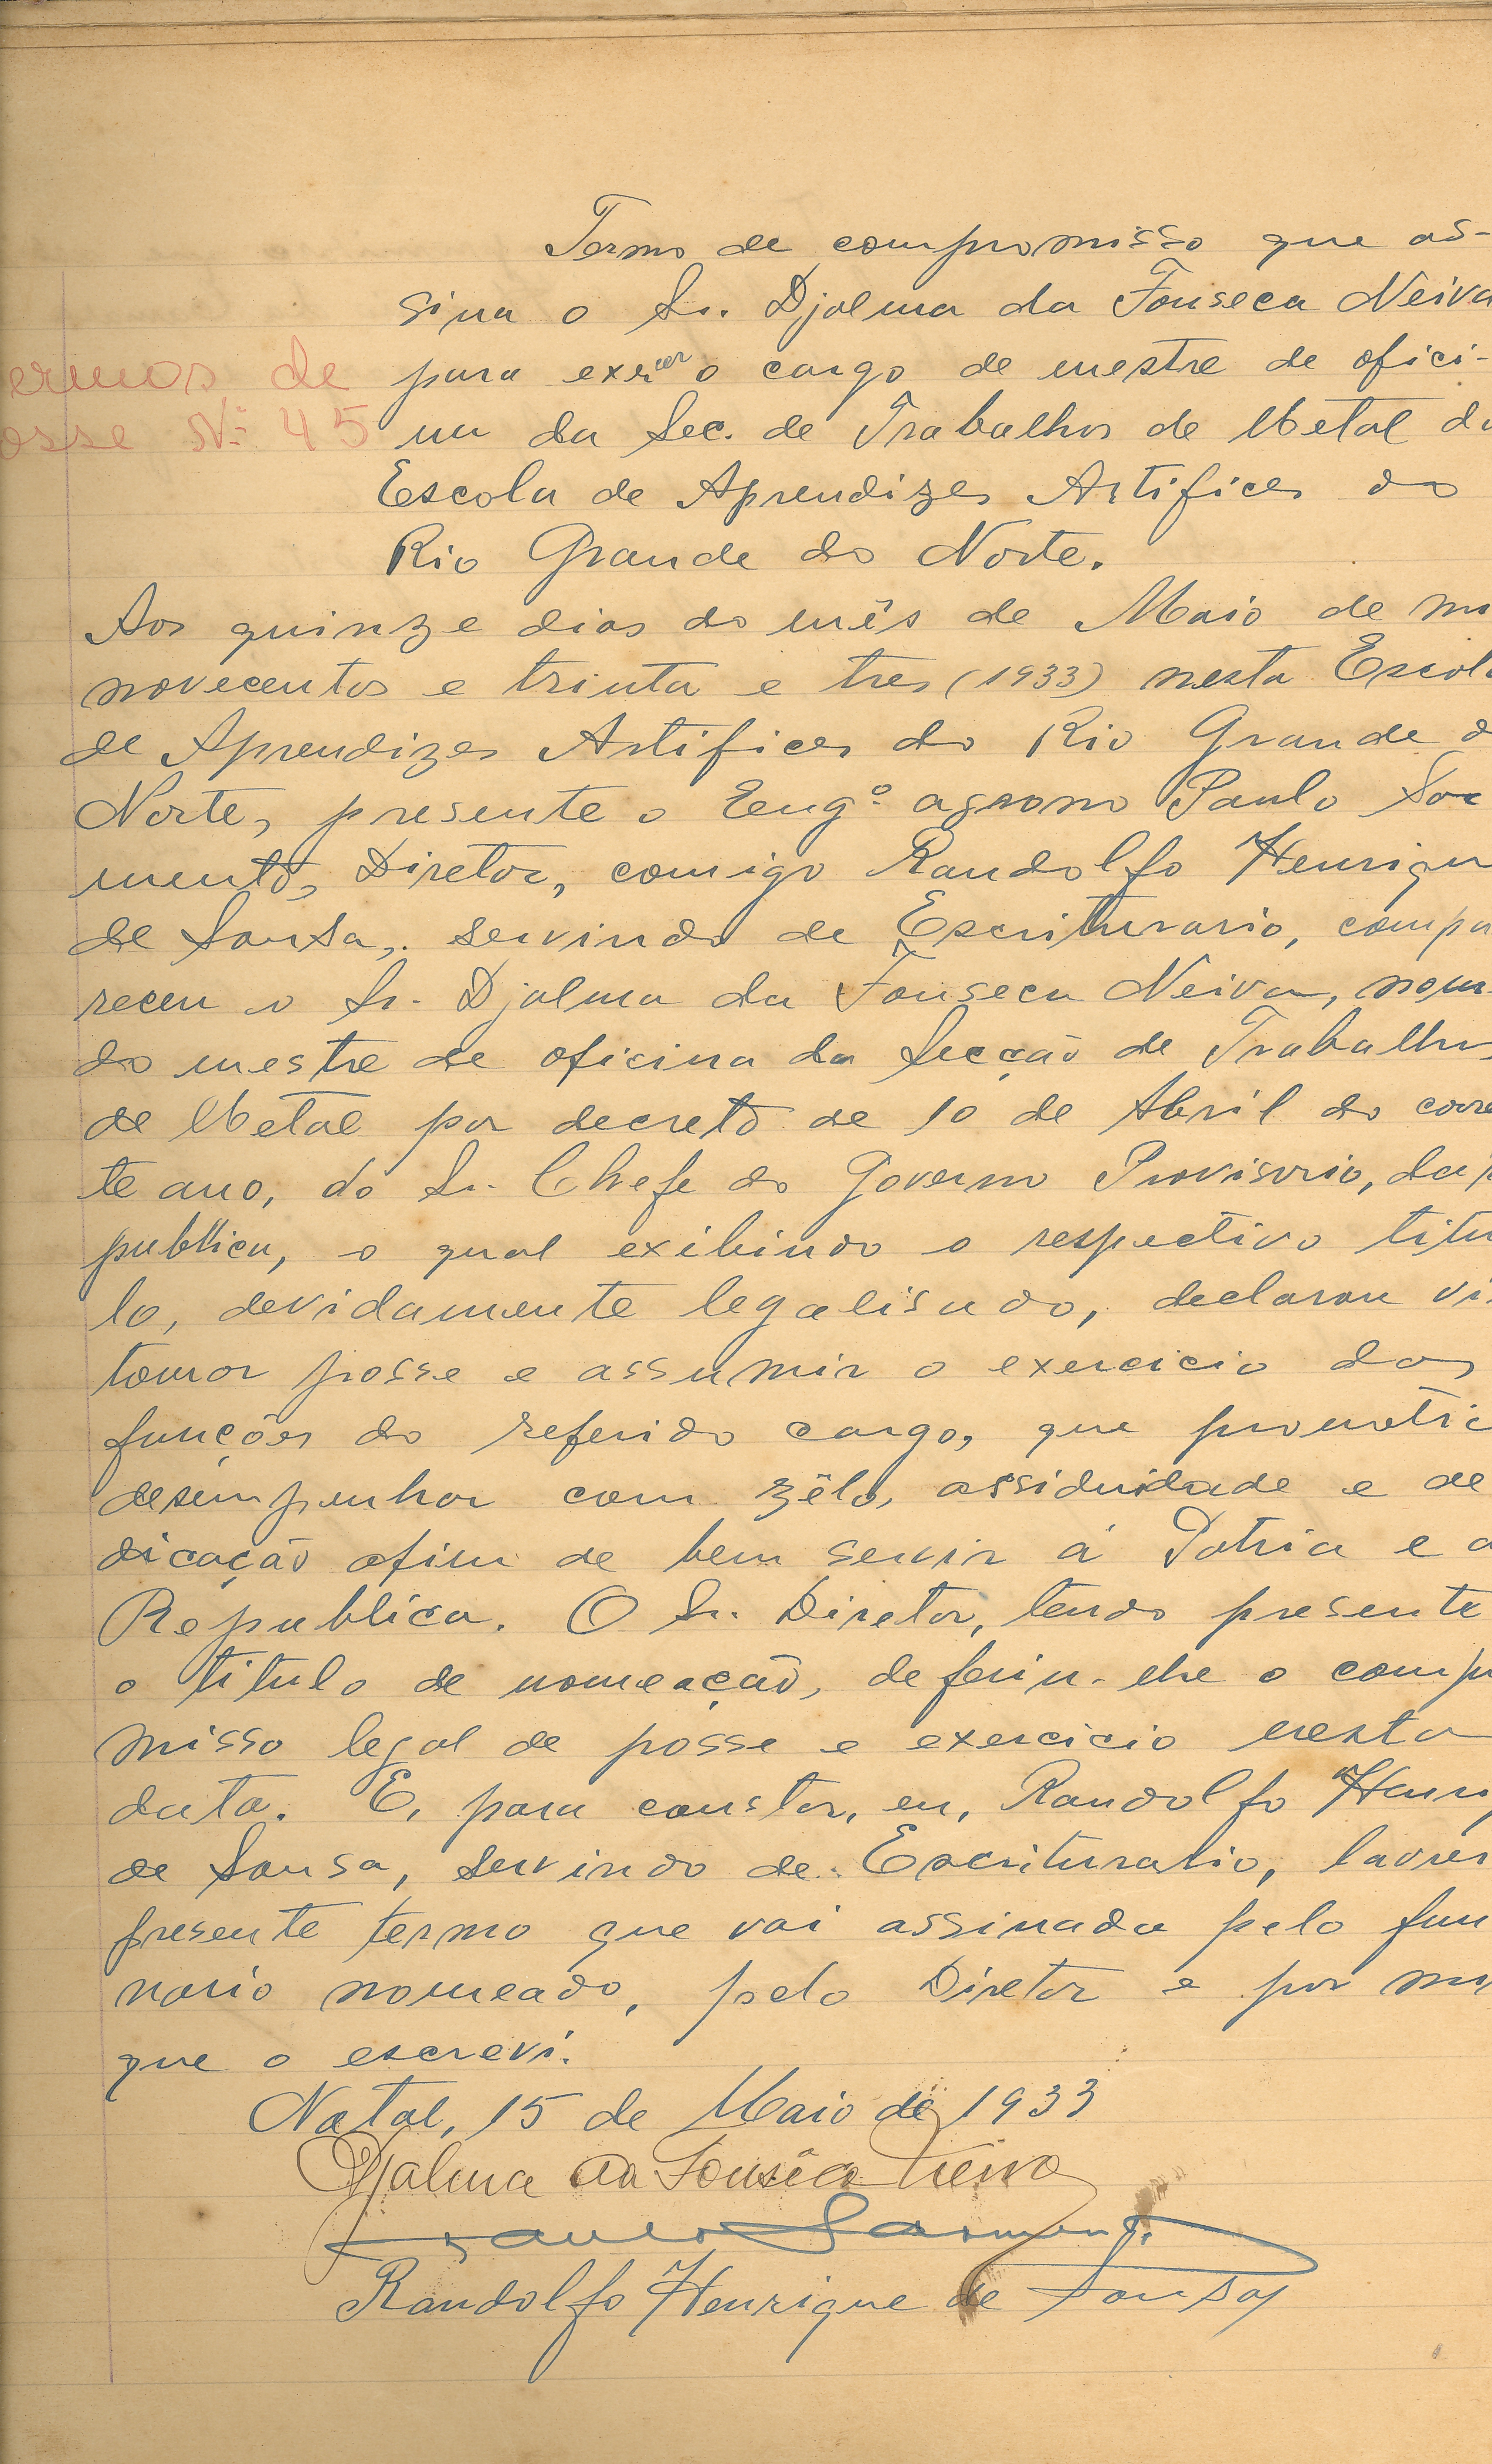 Termo de compromisso que as-
sina o Sr. Djalma da Fonseca Neiva
ermos de
para exercer o cargo de mestre de ofici-
osse Nº 45
na da Sec. de Trabalhos de Metal da
Escola de Aprendizes Artifices do
Rio Grande do Norte.
Aos quinze dias do mês de Maio de mi
novecentos e trinta e tres (1933) nesta Escola
de Aprendizes Artifices do Rio Grande d
Norte, presente o Engº agrono Paulo Sar
mento, Diretor, comigo Randolfo Henriqu
de Sousa, servindo de Escriturario, compa
receu o Sr. Djalma da Fonseca Neiva, nom
do mestre de oficina da Secção de Trabalhos
de Metal por decreto de 10 de Abril do corre
te ano, do Sr. Chefe do Governo Provisorio, da
publica, o qual exibindo o respectivo titu
lo, devidamente legalisado, declarou vi
tomar posse e assumir o exercicio das
funções do referido cargo, que prometic
desempenhar com zêlo, assiduidade e de
dicação afim de bem servir á Patria e a
Républica. O Sr. Diretor, tendo presente
o titulo de nomeação, deferiu-lhe o comp
misso legal de posse e exercicio nesta
data. E, para constar, eu, Randolfo Henri
de Sousa, servindo de Escriturario, lavrei
presente termo que vai assinado pelo fun
nario nomeado, pelo Diretor e por mi
que o escrevi.
Natal, 15 de Maio de 1933
Djalma da Fonsêca Neiva
Paulo Sarmento
Randolfo Henrique de Sousa